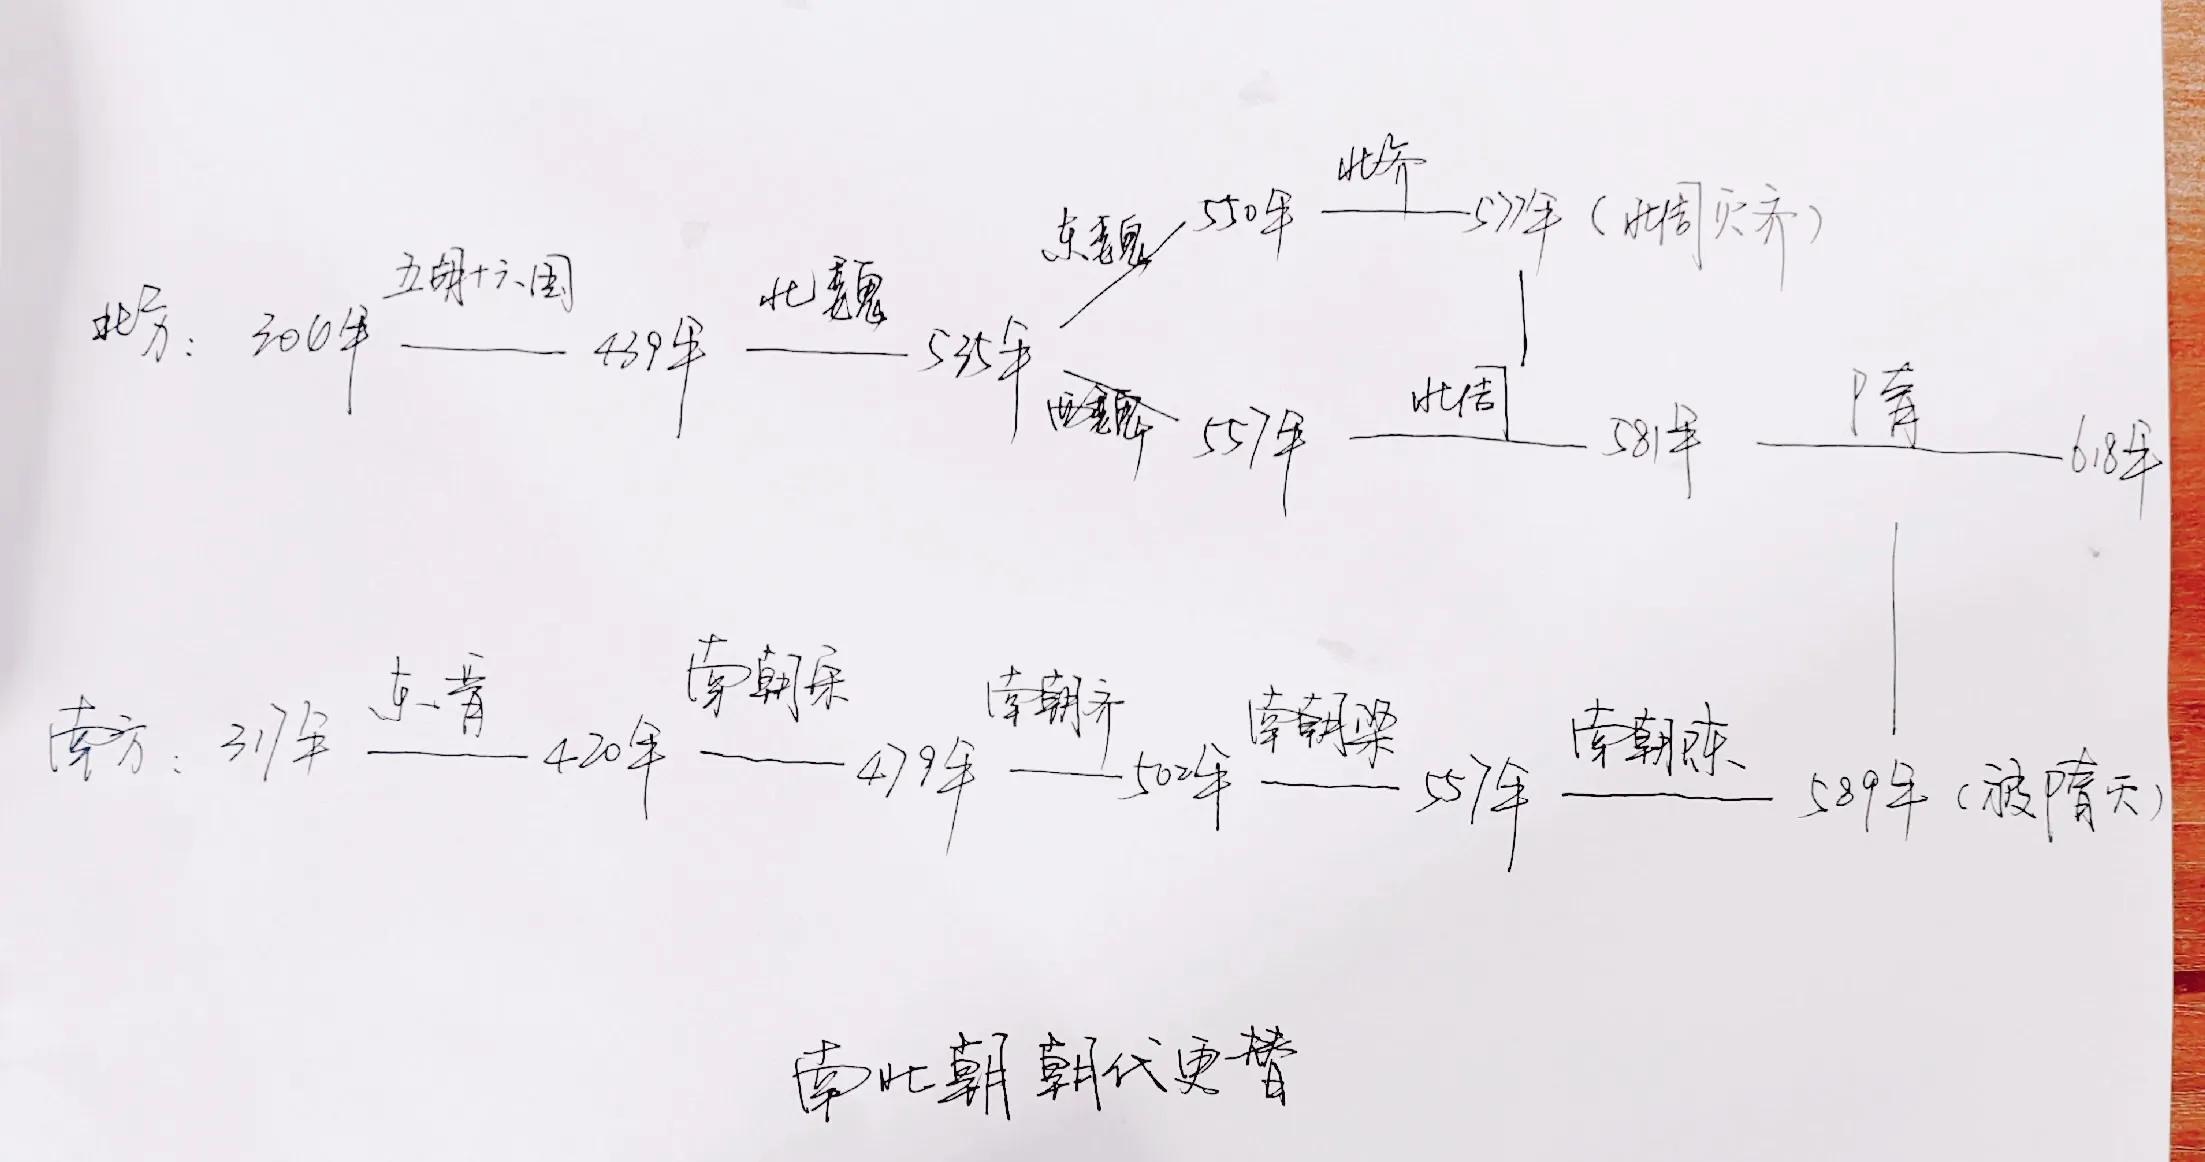 北齐
东魏 550年 577年（北周灭齐）
五胡十六国 北魏
北方： 439年 535年
西魏 557年 北周 581年 隋 618年
东晋 南朝宋 南朝齐 南朝梁 南朝陈
南方：317年 420年 479年 502年 557年 589年（被隋灭）
南北朝 朝代更替